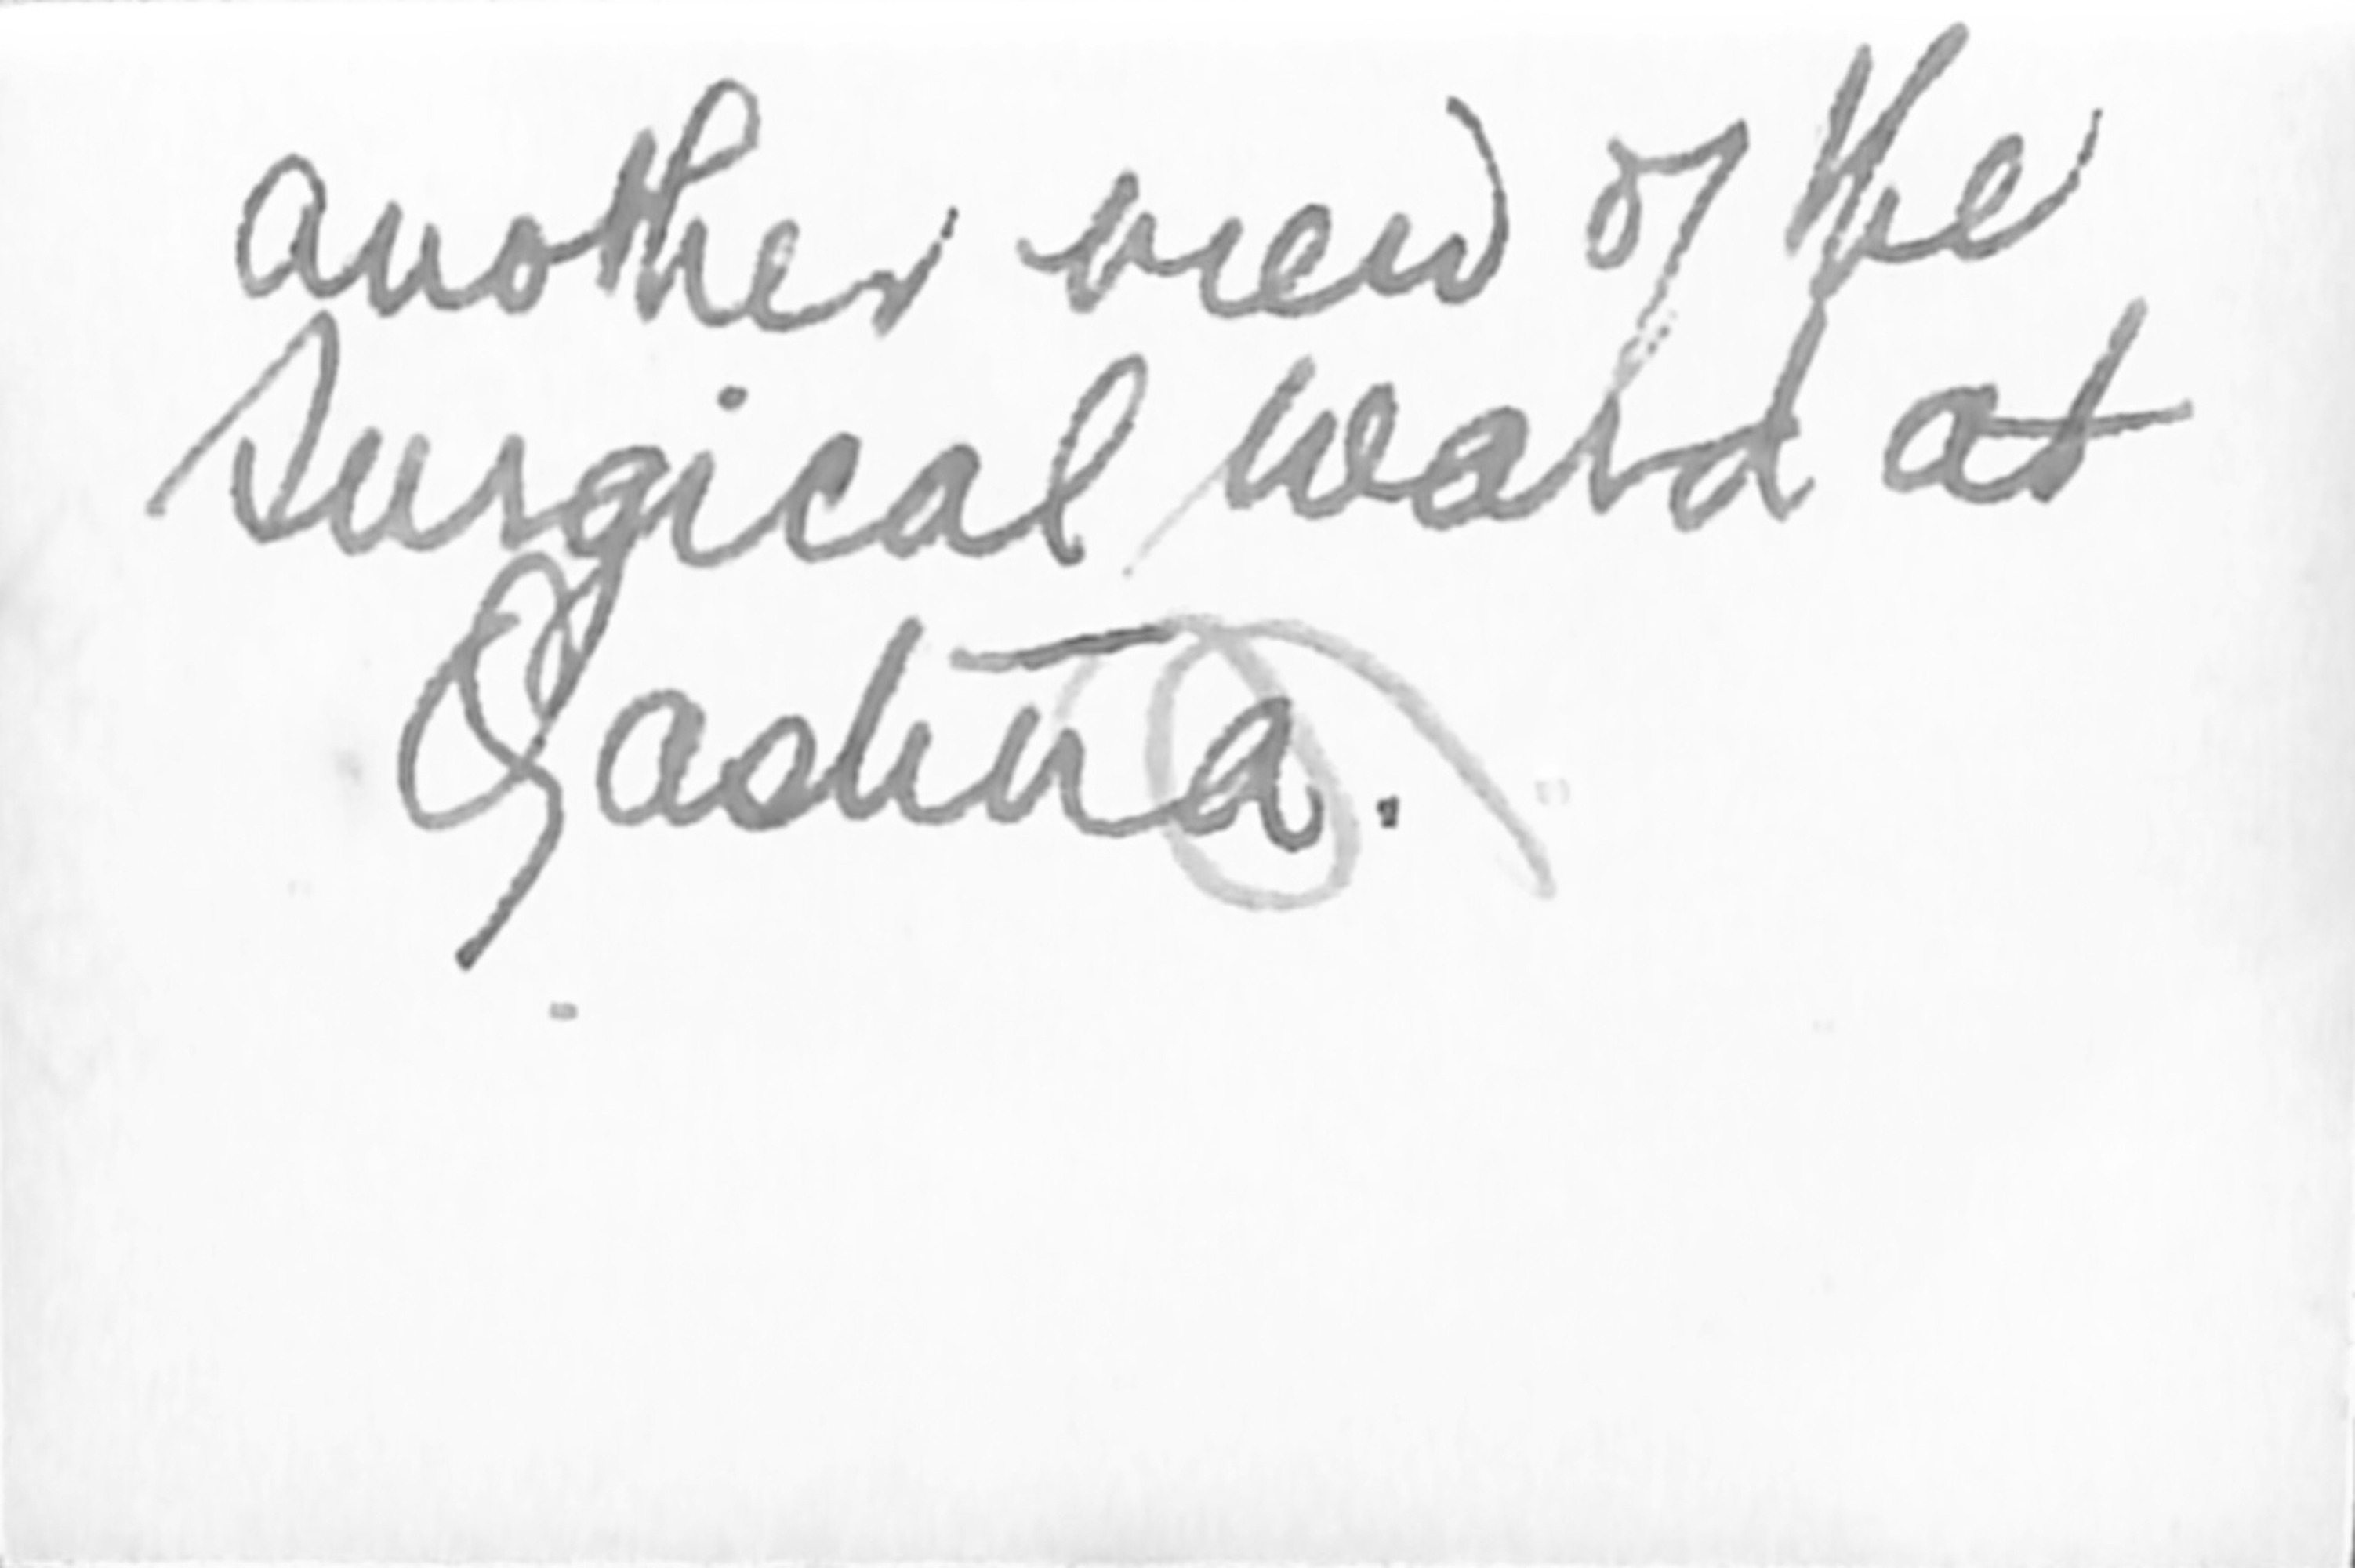 another view of the
surgical ward at
Qastina.